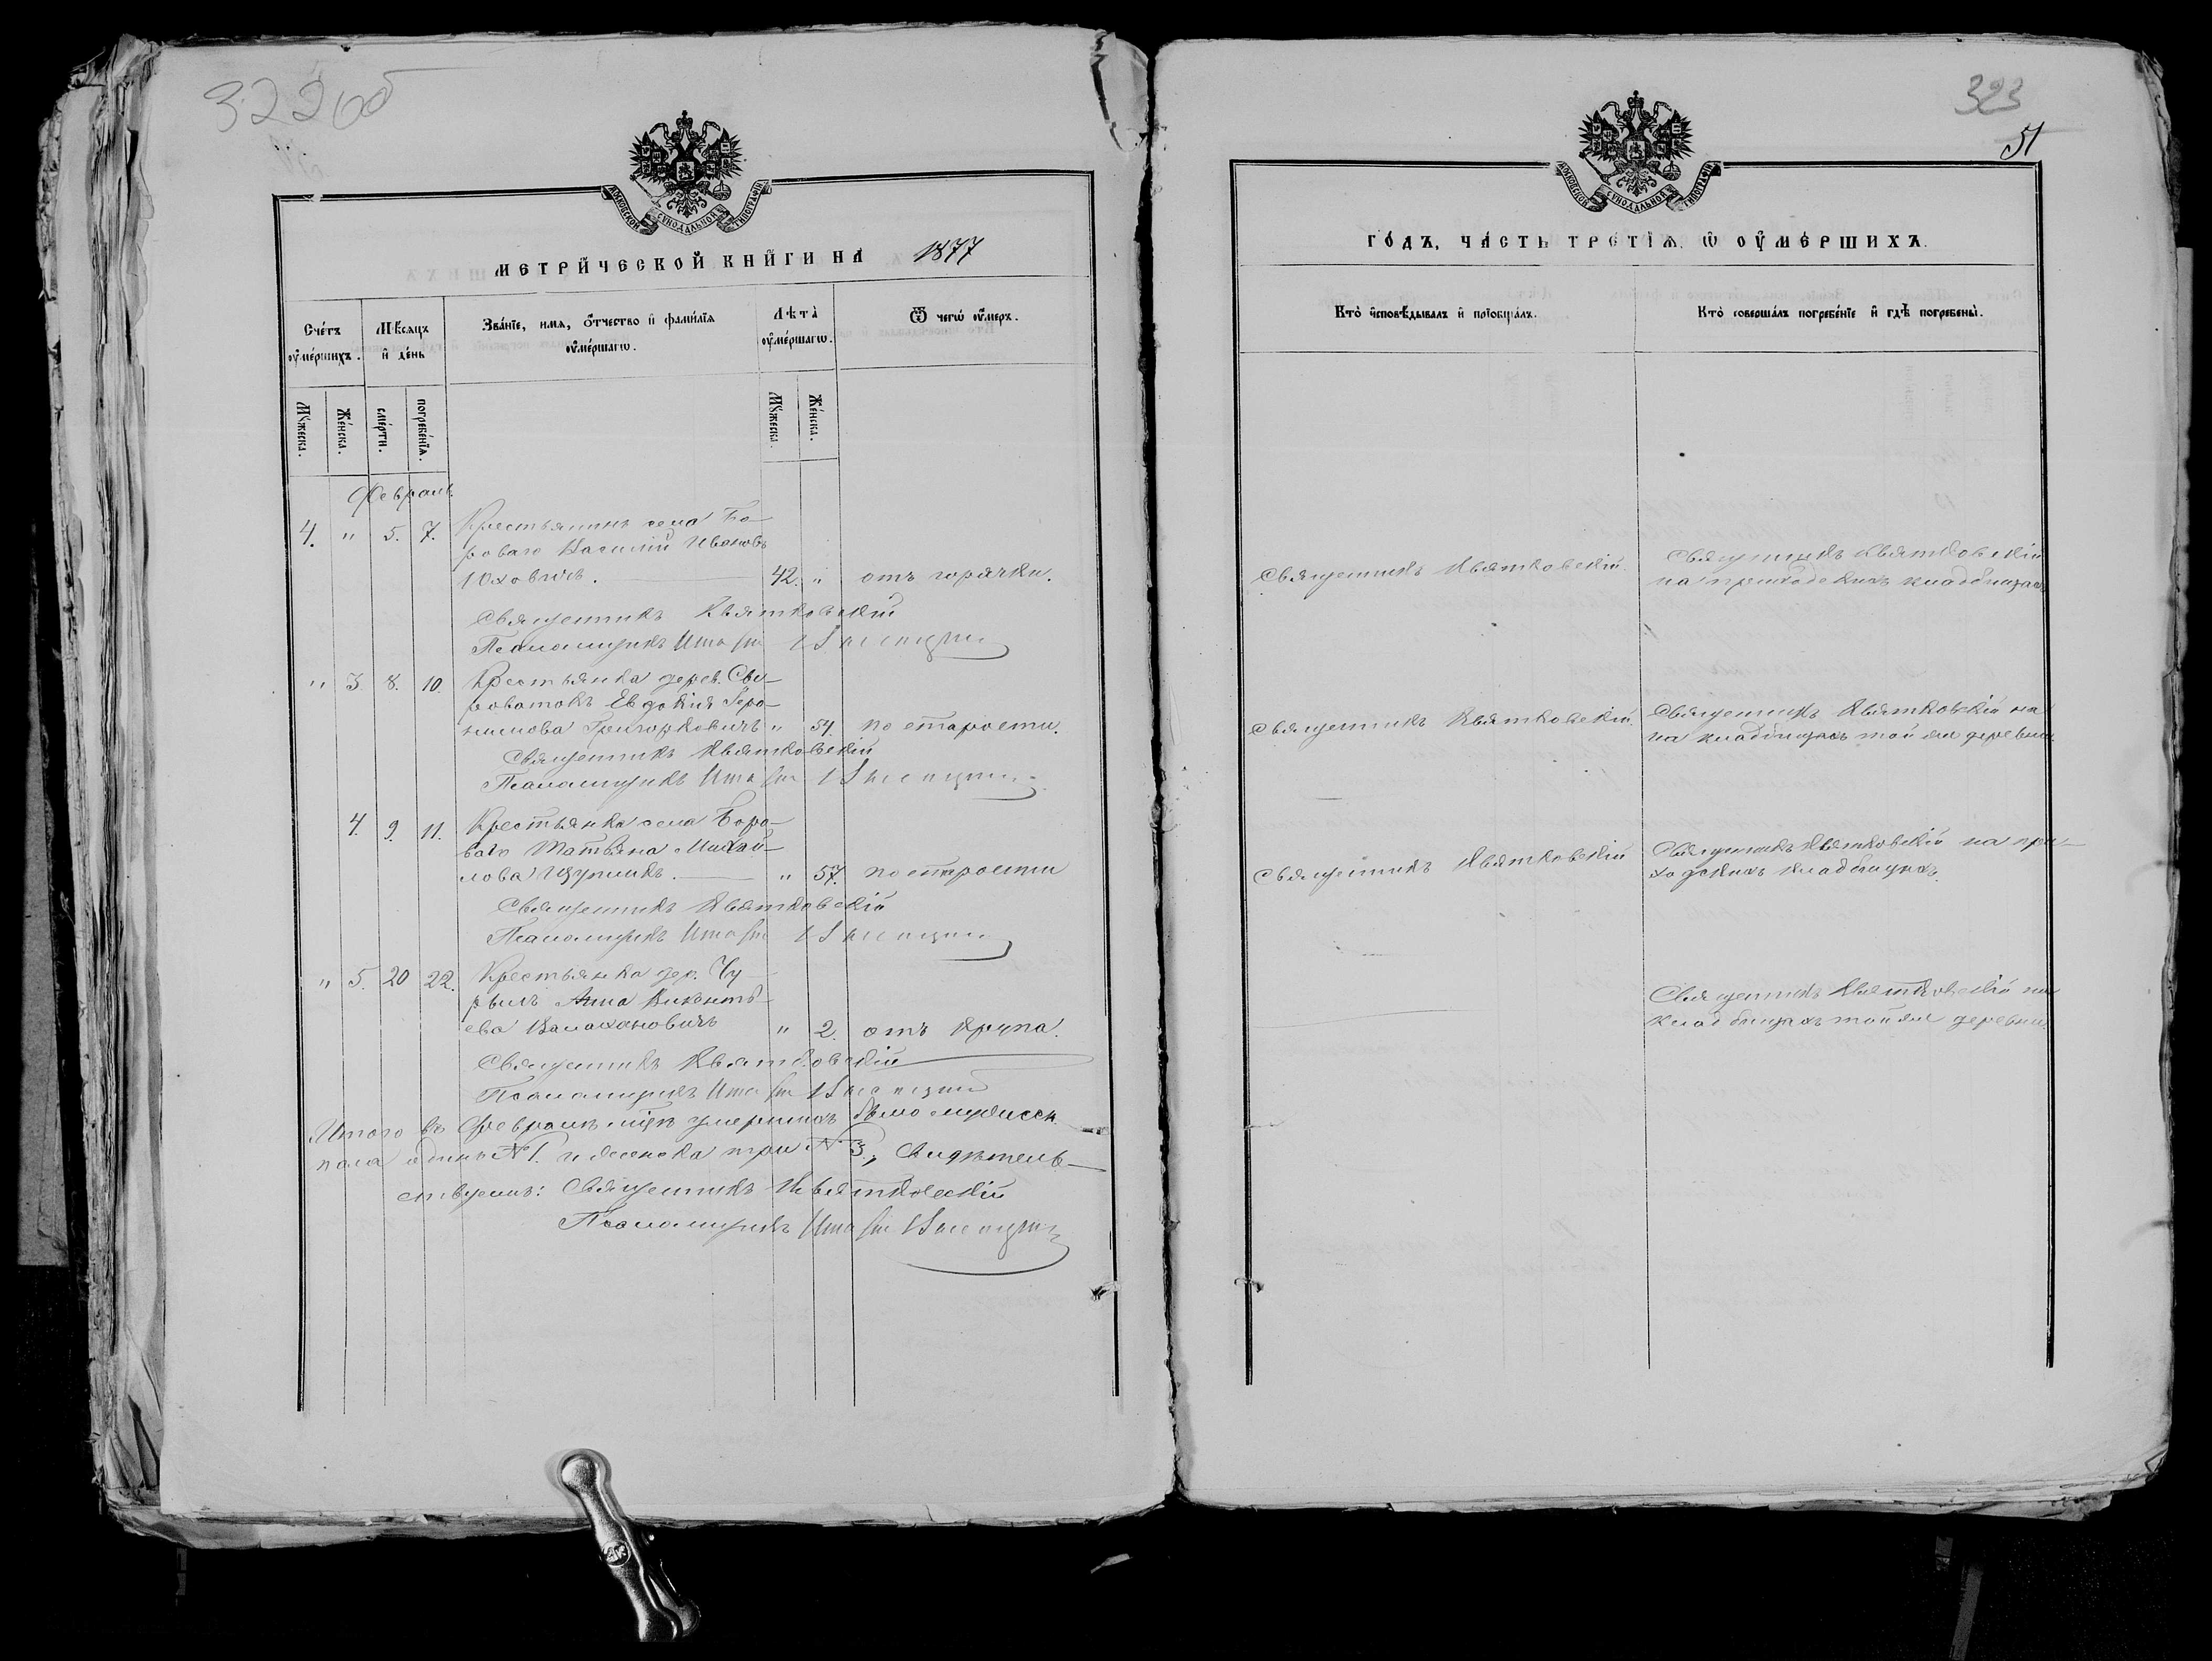 322об
МОСКОВСКОЙ СѴНОДАЛЬНОЙ ТИПОГРАФІИ
МЕТРИ́ЧЕСКОЙ КНИ́ГИ НА 1877
Сче́тъ ᲂу҆ме́ршихъ.
Мѣ́сяцъ и҆ де́нь
Зва́нїе, и҆мѧ, ѻ҆́тчество и҆ фами́лїѧ ᲂу҆ме́ршагѡ.
Лѣта̀ ᲂу҆ме́ршагѡ.
Ѿ чегѡ̀ ᲂу҆́меръ.
Мꙋ́жеска.
Же́нска.
сме́рти.
погребе́нїѧ.
Мꙋ́жеска.
Же́нска.
Февраль
4. " 5. 7. Крестьянинъ села Бо-
роваго Василій Ивановъ
Юховичъ. 42. " отъ горячки.
Священникъ Квятковскій
Псаломщикъ
" 3. 8. 10. Крестьянка дерев. Сви-
роватокъ Евдокія Геро-
нимова Григорковичъ " 54. по старости.
Священникъ Квятковскій
Псаломщикъ
4. 9. 11. Крестьянка села Боро-
ваго Татьяна Михай-
лова Щупликъ. " 57. по старости
Священникъ Квятковскій
Псаломщикъ
" 5. 20 22. Крестьянка дер. Чу-
рилъ Анна Викентъ-
ева Валахановичъ " 2. отъ крупа.
Священникъ Квятковскій
Псаломщикъ
Итого въ Февралѣ мцѣ умершихъ было мужеск.
пола одинъ №1. и женска три №3, Свидѣтель-
ствуемъ: Священникъ Квятковскій
Псаломщикъ
323
51
МОСКОВСКОЙ СѴНОДАЛЬНОЙ ТИПОГРАФІИ
ГО́ДЪ, ЧА́СТЬ ТРЕ́ТЇѦ, Ѡ҆ ОУ҆МЕ́РШИХЪ.
Кто̀ и҆сповѣ́дывалъ и҆ прїобща́лъ.
Кто̀ соверша́лъ погребе́нїе и҆ гдѣ̀ погребены̀.
Священникъ Квятковскій.
Священникъ Квятковскій
на приходскихъ кладбищахъ
Священникъ Квятковскій
Священникъ Квятковскій на
на кладбищахъ той же деревни.
Священникъ Квятковскій
Священникъ Квятковскій на при-
ходскихъ кладбищахъ.
Священникъ Квятковскій на
кладбищахъ той же деревни.